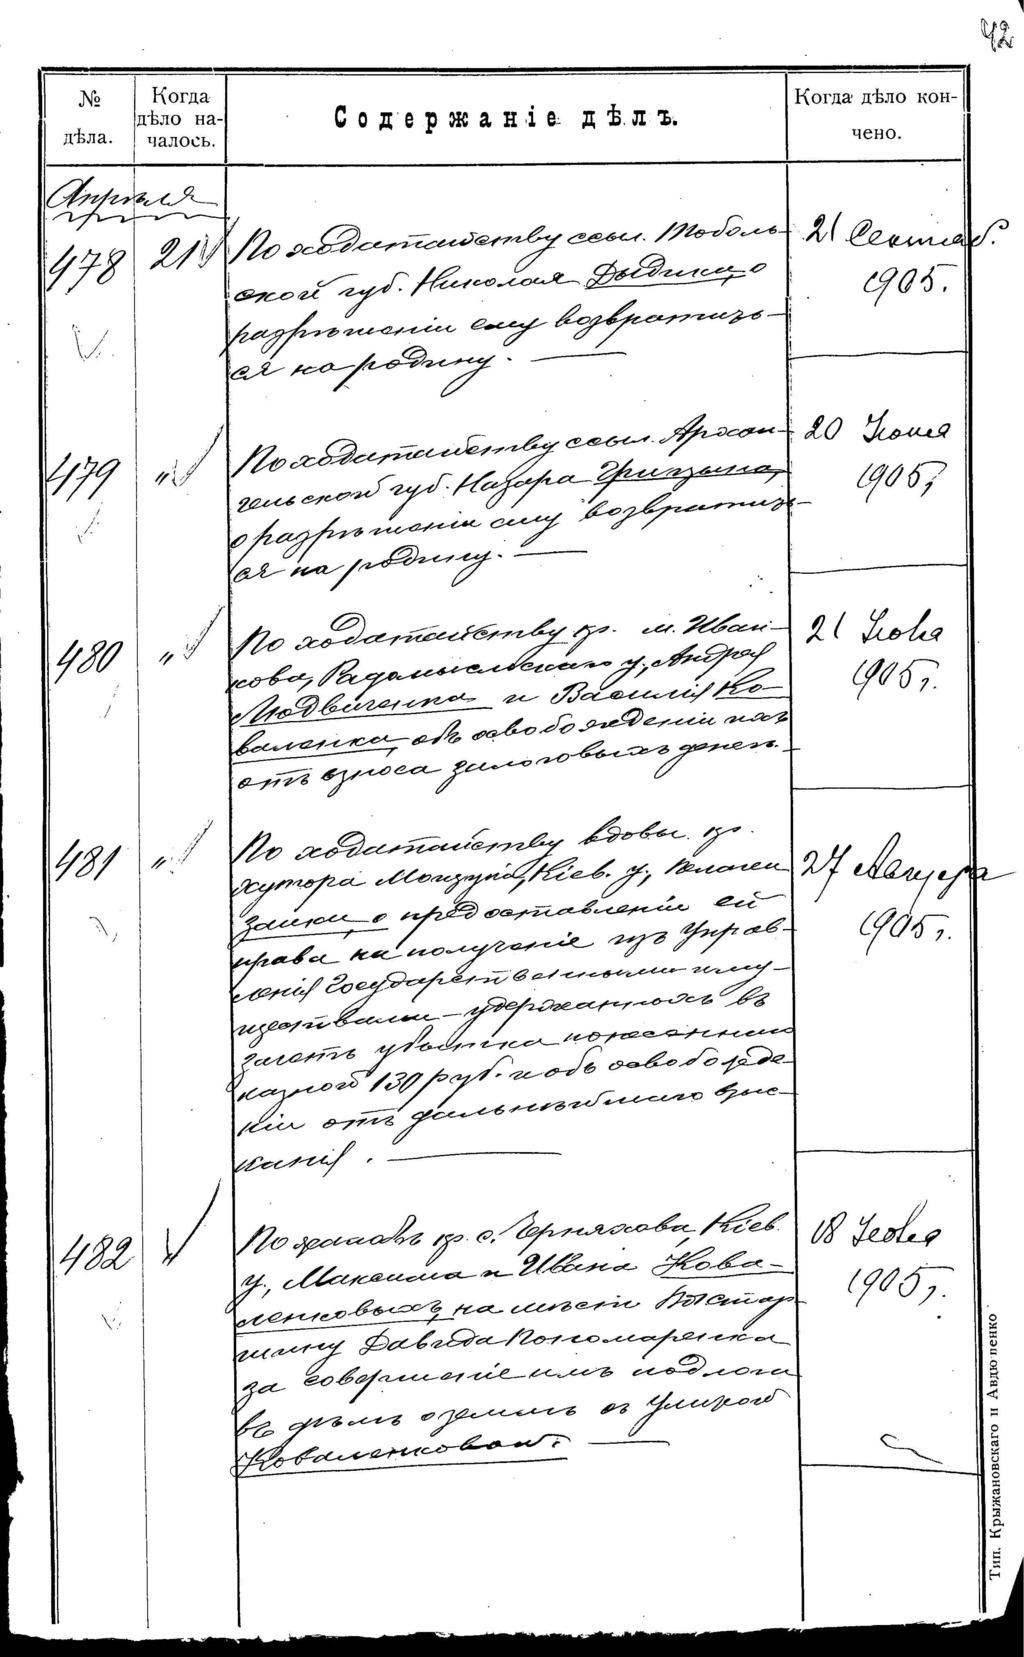 42
№ дѣла.
Когда дѣло началось.
Содержаніе дѣлъ.
Когда дѣло кончено.
Апрѣля
478
21
По ходатайству ссыл. Тоболь-
ской губ. Николая Дыдика, о
разрѣшеніи ему возвратить-
ся на родину.
21 Сентяб.
1905.
479
"
По ходатайству ссыл. Архан-
гельской губ. Назара
о разрѣшеніи ему возвратить-
ся на родину.
20 Іюня
1905,
480
"
По ходатайству кр. м. Иван-
кова, Радомысльскаго у., Андрея
Людвиченка и Василія Ко-
валенка, объ освобожденіи ихъ
отъ взноса залоговыхъ денегъ.
21
1905,.
481
"
По ходатайству вдовы кр.
хутора Кіев. у.,
о предоставленіи ей
права на полученіе изъ Управ-
ленія Государственными иму-
ществами – удержанныхъ въ
зачетъ убытка понесеннаго
казной 130 руб. и объ освобожде-
ніи отъ дальнѣйшаго взыс-
канія.
27 Августа
1905,.
482
По жалобѣ кр. с. Черняхова, Кіев.
у., Максима и Ивана Кова-
ленковыхъ, на мѣстн. Вол. Стар-
шину Давида Пономаренка
за совершеніе имъ подлога
въ дѣлѣ о землѣ съ
Коваленковой.
18
1905,.
Тип. Крыжановскаго и Авдюшенко